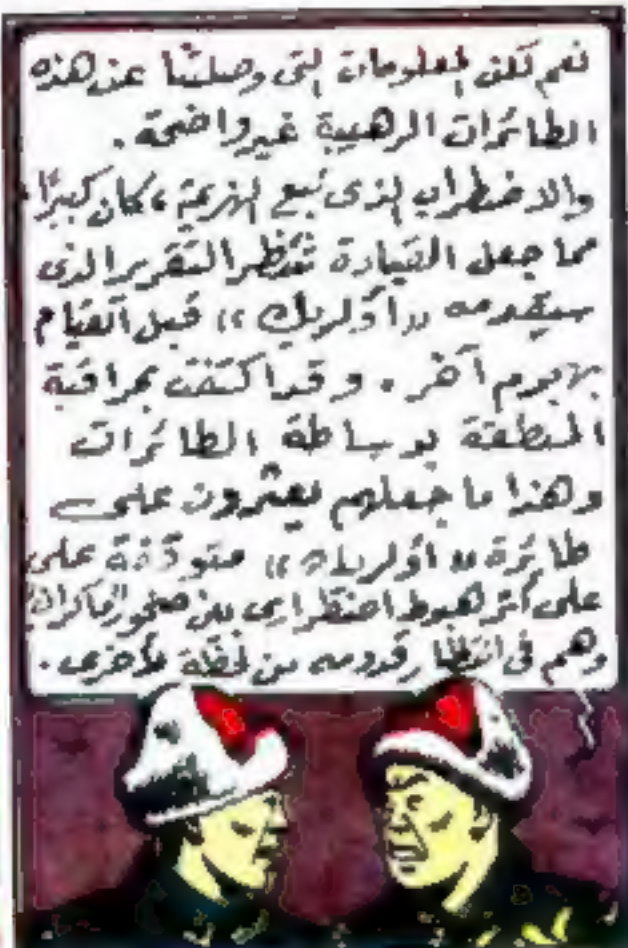 نعم لكن المعلومات التى وصلتنا عن هذه
الطائرات الرهيبة غير واضحة .
والاضطراب الذى تبع الهزيمة ، كان كبيرًا
مما جعل القيادة تنتظر التقرير الذى
سيقدمه «أولريك» قبل القيام
بهجوم آخر . وقد اكتفت بمراقبة
المنطقة بوساطة الطائرات
وهذا ما جعلهم يعثرون على
طائرة «أولريك» متوقفة على
على أثر هبوط اضطرارى بين صخور
وهم فى انتظار قدومه من لحظة لأخرى .